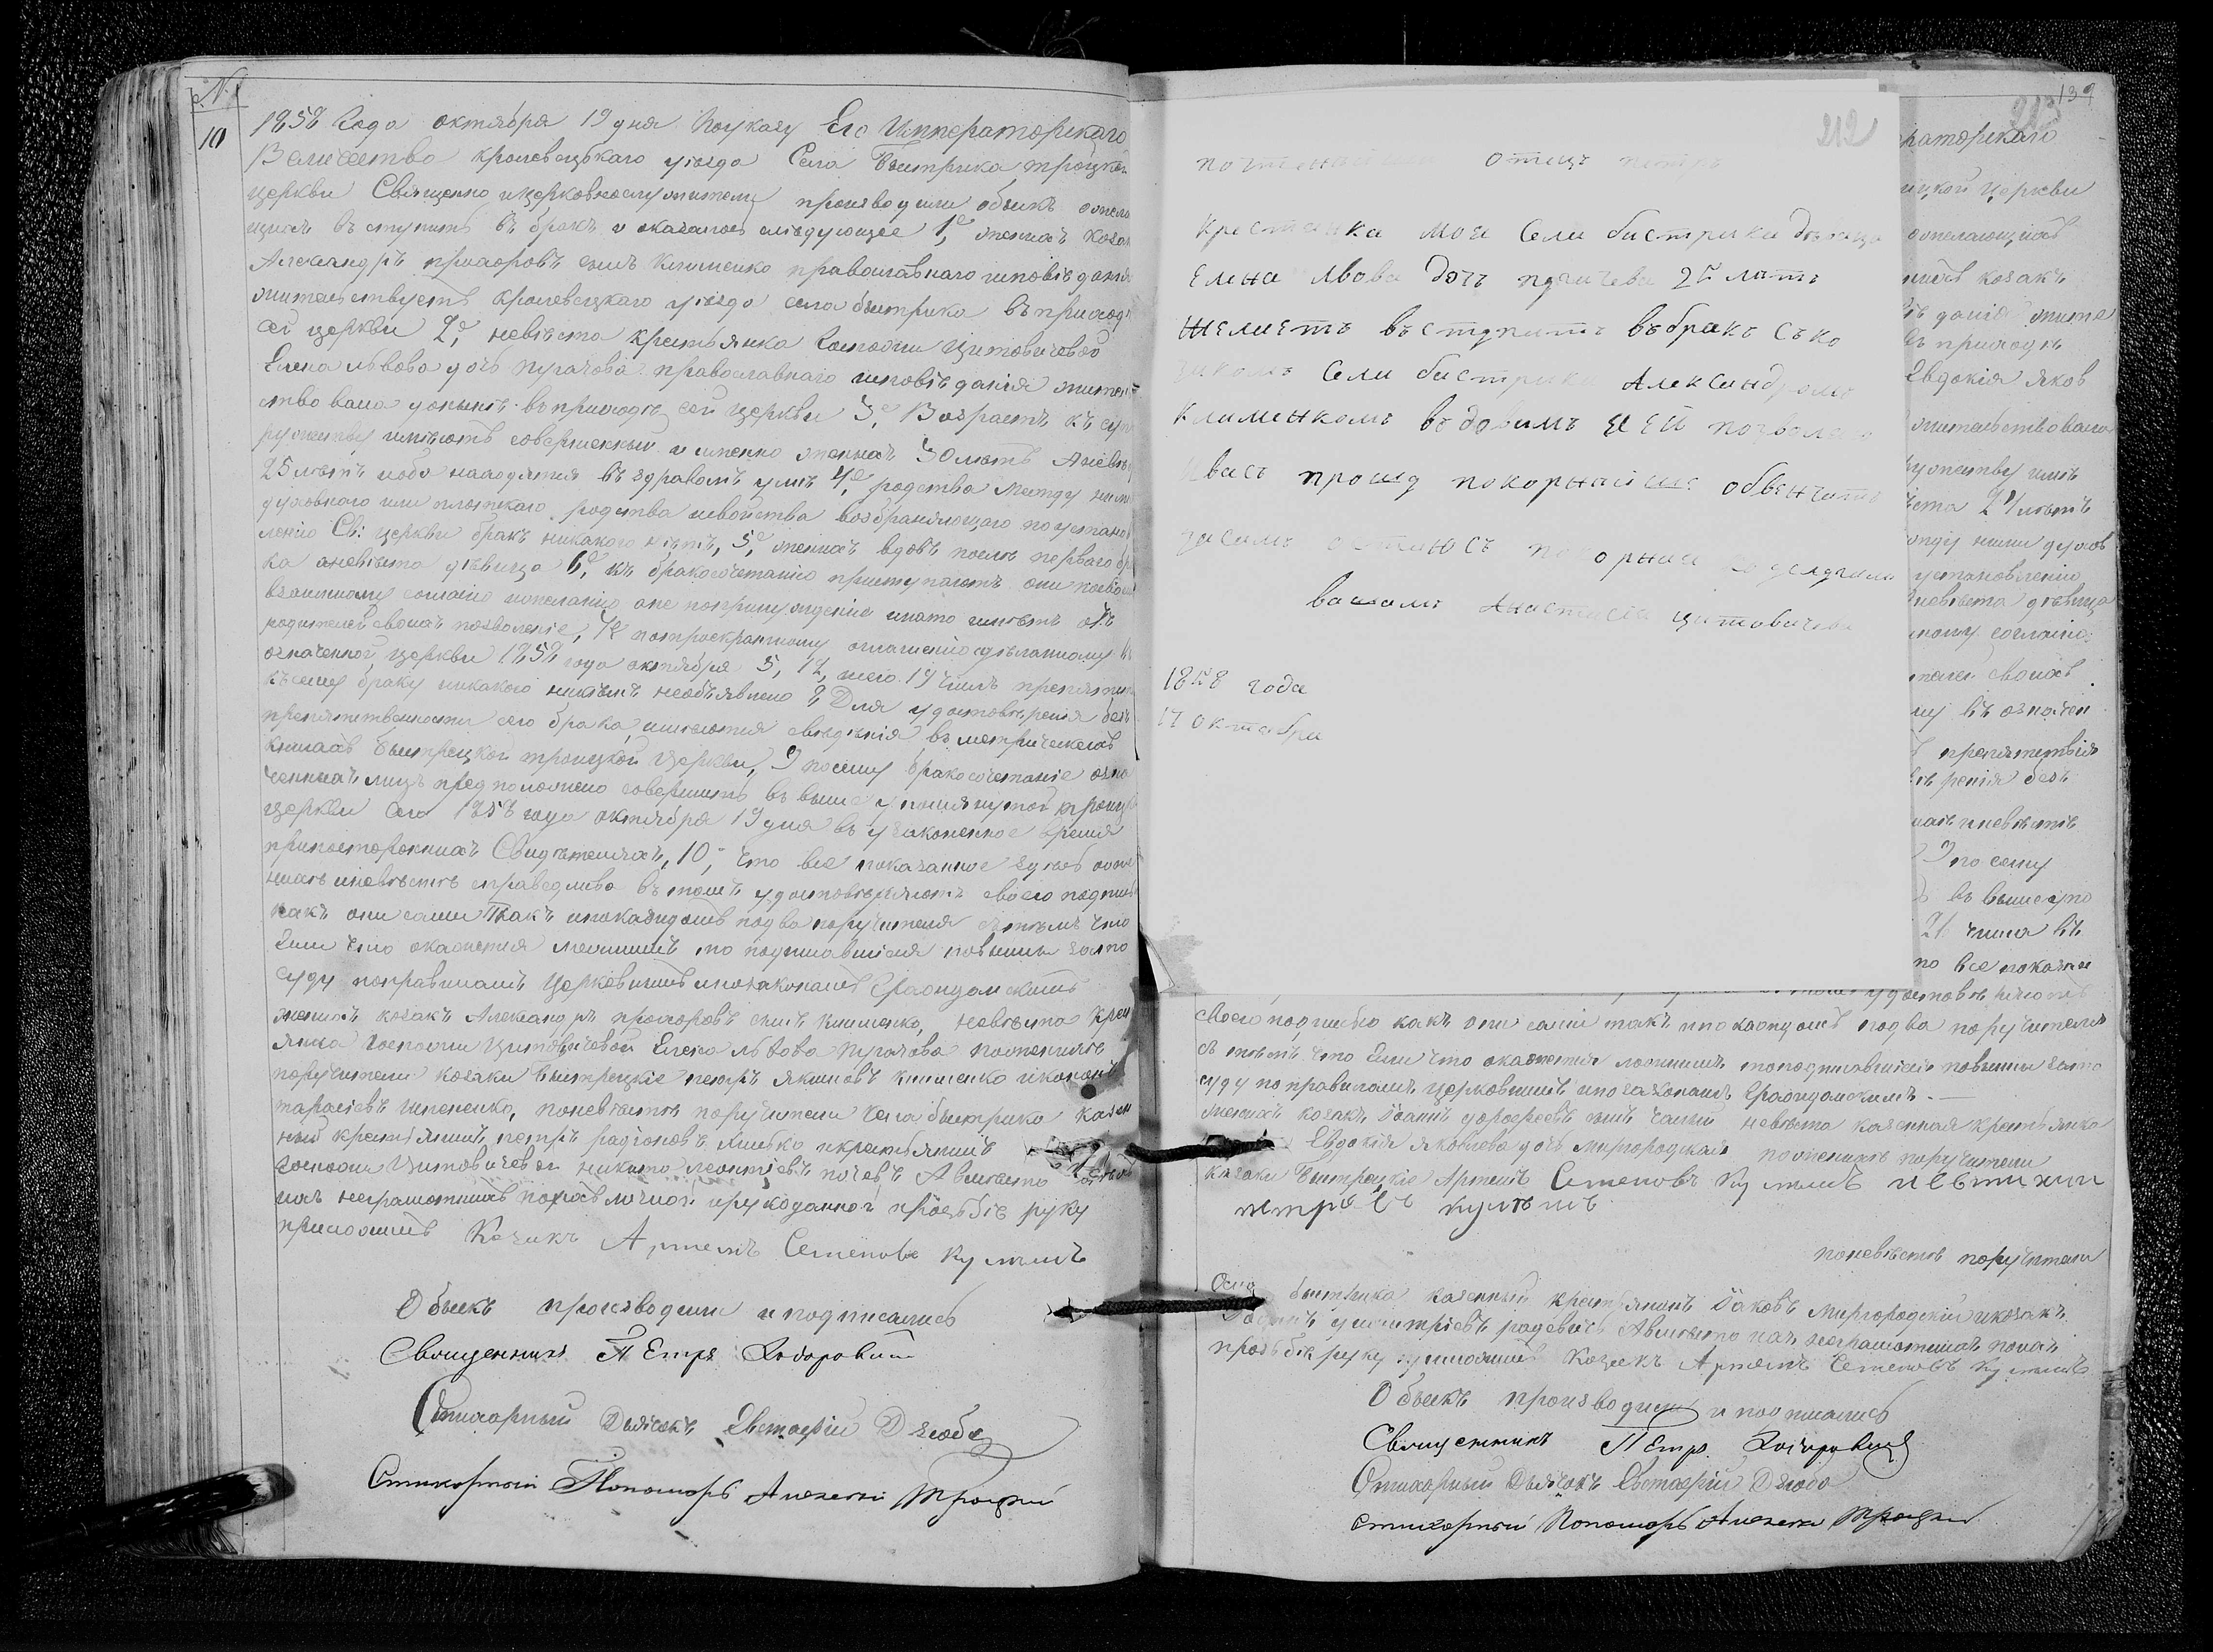 №
10
1858 Года октября 19 дня По указу Его Императорскаго
Величества кролевецькаго уѣзда Села Быстрика троцкой
церкви Священно ицерковнослужители производили обыскъ ожела
ющихъ вступить въ бракъ и оказалось слѣдующее 1е, женихъ козак
Александръ прохоровъ сынъ Клименко православнаго исповѣданія
жительствуетъ кролевецкаго уѣзда села быстрика въ приходѣ
сей церкви 2е, невѣста крестьянка Госпожи Цитовичевой
Елена львова дочь пугачова православнаго исповѣданія жительст
ствовала донынѣ въ приходѣ сей церкви 3е, Возрастъ къ супр
ружеству имѣютъ совершенный и именно женихъ 30 лѣтъ Аневѣс
25 лѣтъ иоба находятся въ здравомъ умѣ 4е, родства между ними
духовнаго или плотскаго родства исвойства возбраняющаго по устано
ленію Св: церкви бракъ никакого нѣтъ, 5е, женихъ вдовъ послѣ перваго бра
ка аневѣста дѣвица 6е, къ бракосочетанію приступаютъ они посвоему
взаимному согласію ижеланію ане попринужденію инато имѣютъ отъ
родителей своихъ позволеніе, 7е потроекратному оглашенію сдѣланному въ
означенной церкви 1858 года октября 5, 12, исего 19 числъ препятств
къ сему браку никакого никѣмъ необъявлено 8 Для удостовѣренія безъ
препятственности сего брака, имѣются свѣдѣнія въ метрическихъ
книгахъ быстрецкой троицкой Церкви, 9 посему бракосочетаніе озна
ченныхъ лицъ предположено совершить въ выше упомянутой троицк
церкви сего 1858 года октября 19 дня въ узаконенное время
припостороннихъ Свидѣтеляхъ, 10, что все показанное здѣсь ожe
нихѣ иневѣстѣ справедливо въ томъ удостовѣряютъ своею подпись
какъ они сами Такъ ипокаждомъ подва поручителя сътѣмъ что
Если что окажется ложнымъ то подписавшіеся повинны затo
суду поправиламъ Церковнымъ ипозаконамъ Гражданскимъ
женихъ козакъ Александръ прохоровъ сынъ клименко, невѣста Крест
янка Госпожи Цитовичевой Елена львова пугачова поженихѣ
поручители козаки быстрецкіе петръ якимовъ клименко иконон
тарасіевъ ипененко, поневѣстѣ поручители Села быстрика казен
ный крестьянинъ петръ радіоновъ икрестьянинъ
Госпожи Цитовичевой никита леонтіевъ Авмѣсто
ихъ неграмотныхъ поихъ личной ирукоданной прозьбѣ руку
приложилъ Козакъ Артемъ Семеновъ Кулешъ
Обыскъ производили и подписались
Священникъ ПЕтръ
Стихарный Дьячекъ Евстафій Дзюба
Стихарный Пономарь Алексей Троцкій
139
212
213
почтеный отецъ петръ
крестянка моя Села бистрика двица
Елена Львова дочъ пугачева 25 латъ
желиетъ въступитъ въбракъ съко
закомъ Села бистрика Александромъ
Клименкомъ въдовимъ ЕЙ позволаю
Ивасъ прошу покорнайше обвенчатъ
засимъ остаюсъ
вашамъ Анастасія цитовичева
1858 года
17 октабра
ператорскаго
ицкой Церкви
ожелающихъ
нихъ козакъ
ѣданія жите
въ приходѣ
Евдокія яков
жительствовала
ружеству имѣ
ѣста 21 лѣтъ
ежду ними духов
установленію
невѣста дѣвица
ному согласію
телей своихъ
ну въ означен
препятствія
ѣренія безъ
ихѣ иневѣстѣ
9 по сему
въ вышеупо
21 числа въ
то все показан
удостовѣряютъ
своею подписью какъ они сами такъ ипокаждомъ подва поручителя
съ тѣмъ что Если что окажется ложнымъ топодписавшіесь повинны зато
суду по правиламъ церковнымъ ипозаконамъ Гражданскимъ. —
женихъ козакъ Іоаннъ дорофеевъ сынъ невѣста казенная крестьянка
Евдокія яковлева дочь миргородская поженихѣ поручители
козаки быстрецкіе Артемъ Семеновъ Кулешъ иевтихіи
петровъ кулешъ
поневѣстѣ поручители
Села быстрика казенный крестьянинъ Іаковъ Миргородскій икозакъ
димитріевъ радевичъ Авмѣсто ихъ неграмотныхъ поихъ
прозьбѣ руку приложилъ Козакъ Артемъ Семеновъ Кулешъ
Обыскъ производили и подписались
Священникъ ПЕтръ
Стихарный Дьячекъ Евстафій Дзюба
Стихарный Пономарь Алексей Троцкій